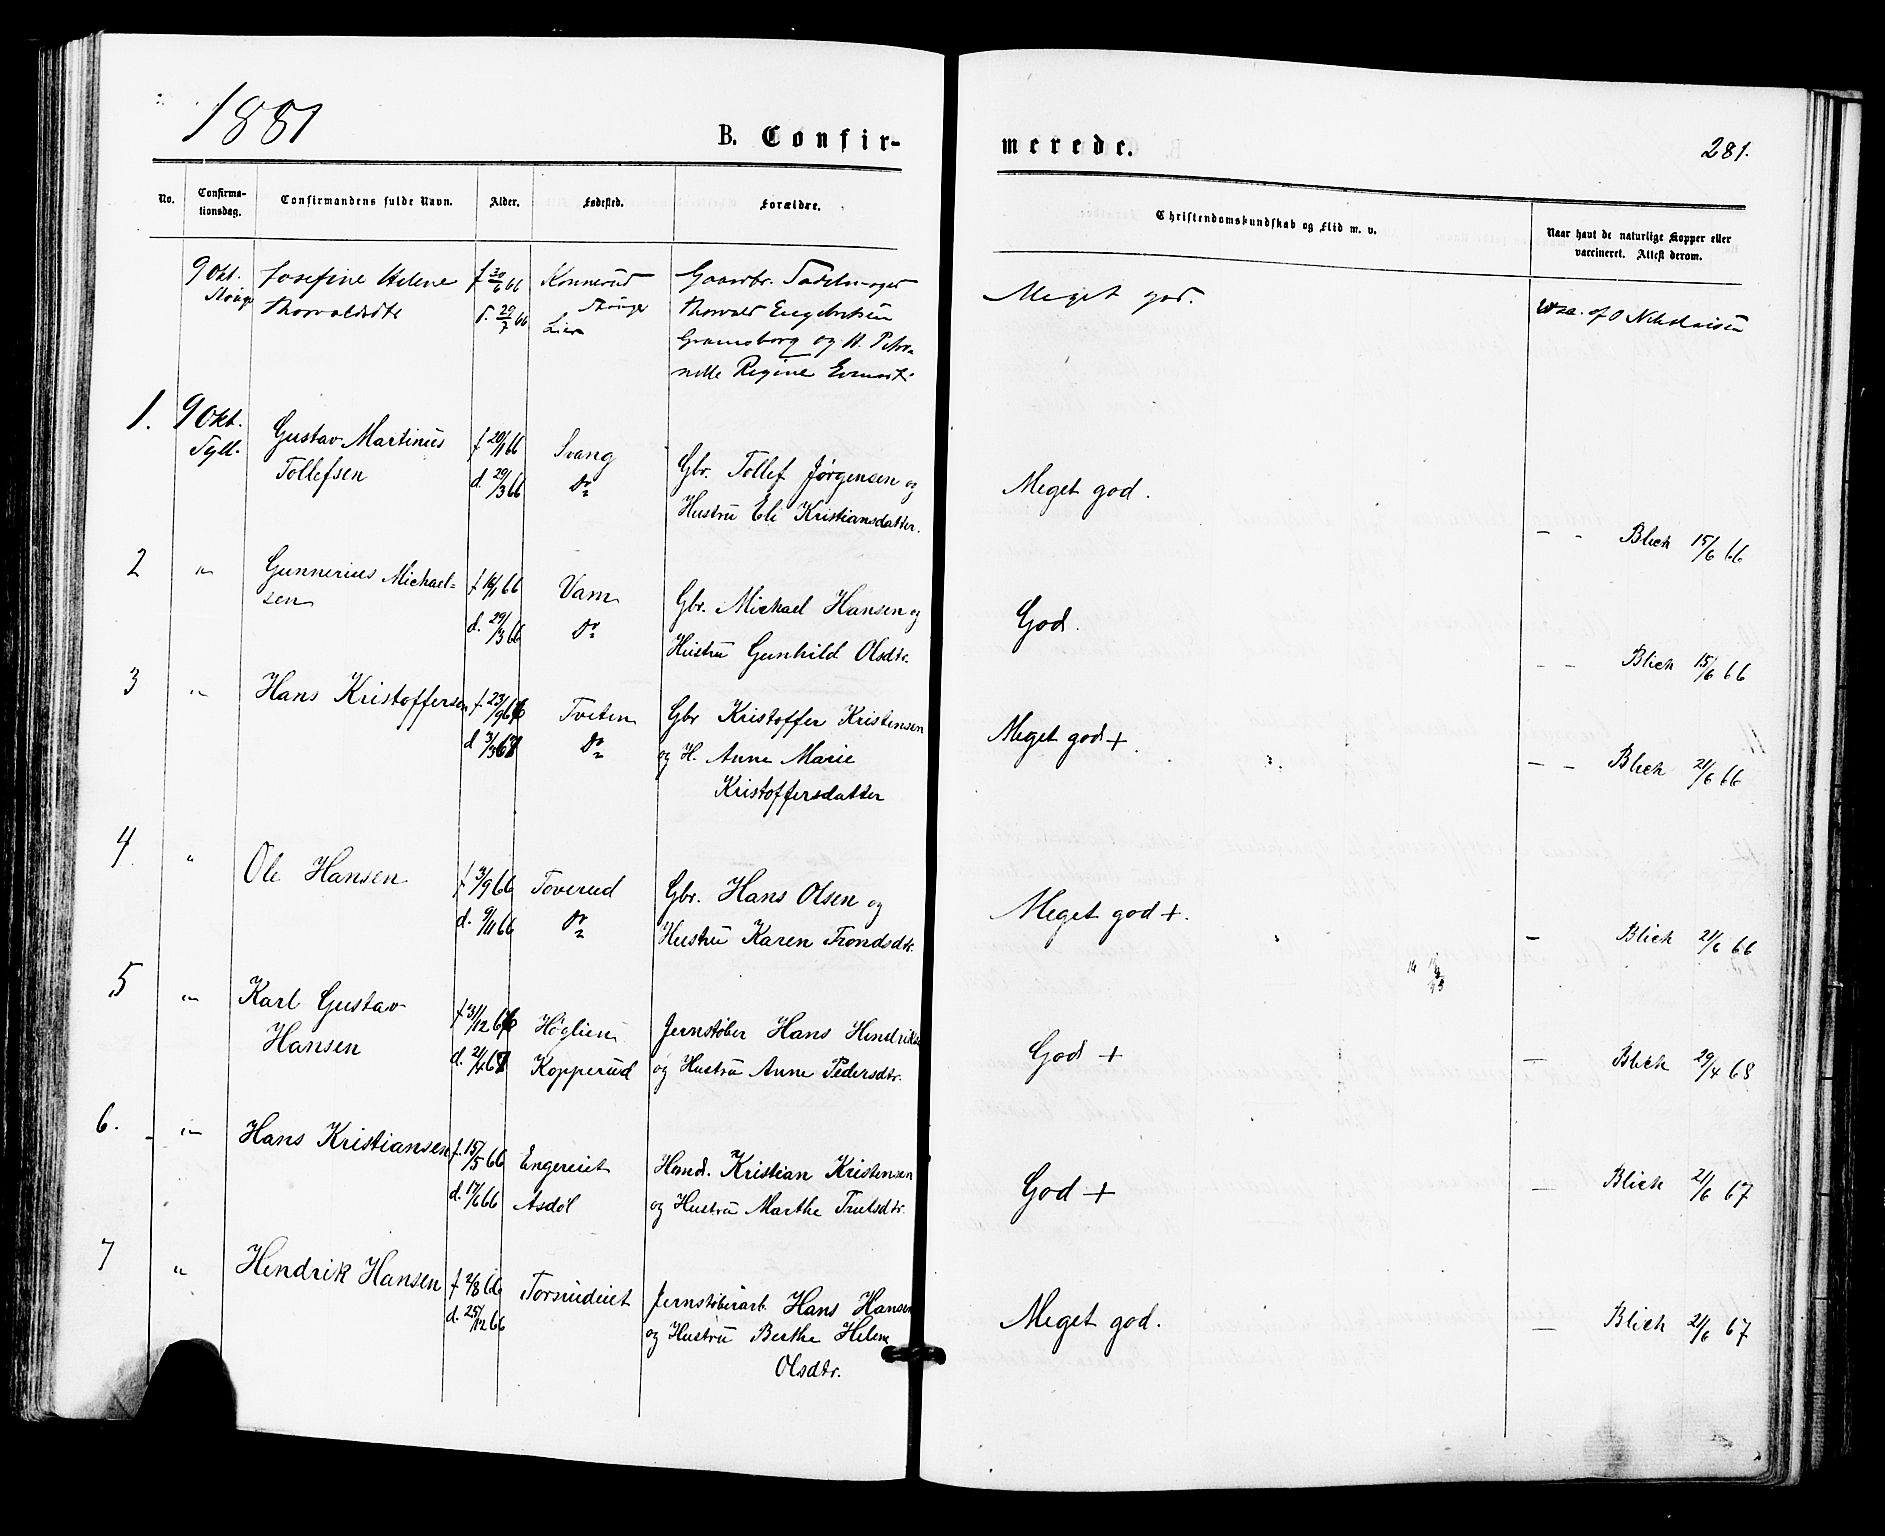 1881
B. Confir-
merede.
281.
No.
Confirma-
tionsdag.
Confirmandens fulde Navn.
Alder.
Fødested.
Forældre.
Christendomskundskab og Flid m. v.
Naar havt de naturlige Kopper eller
vaccineret. Attest derom.
9 Okt. Josefine Helene f 30/6 66 Konnerud Gaardbr.
Thorvaldsdtr d. 29/7 66 Lier Thorvald Engebretsen
og H. Petro-
nelle Regine
Meget god.
af O Nikolaisen
1. 9 Okt. Gustav Martinus f 20/1 66 Svang Gbr. Tollef Jørgensen og
Tollefsen d. 29/3 66 Do Hustru Eli Kristiansdatter.
Meget god.
- - Blich 15/6 66
2 " Gunnerius Michael- f 16/1 66 Vam Gbr. Michael Hansen og
sen d. 29/3 66 Do Hustru Gunhild Olsdtr.
God.
- - Blich 15/6 66
3 " Hans Kristoffersen f 23/9 66 Tveten Gbr Kristoffer Kristensen
d 3/3 67 Do og H. Anne Marie
Kristoffersdatter
Meget god +.
- - Blich 21/6 66
4. " Ole Hansen f 3/9 66 Toverud Gbr. Hans Olsen og
d. 9/11 66 Do Hustru Karen Trondsdtr.
Meget god +.
- Blich 21/6 66
5 " Karl Gustav f 31/12 66 Høglien Jernstøber Hans Hendriks
Hansen d. 21/4 67 Kopperud og Hustru Anne Pedersdtr.
God +
- Blich 29/4 68
6. " Hans Kristiansen f. 15/5 66 Engereiet Hand. Kristian Kristensen
d. 17/6 66 Asdøl og Hustru Marthe Trulsdtr.
God +
- Blich 21/6 67
7 " Hendrik Hansen f 2/8 66 Torsrudeiet Jernstøberiarb. Hans Hansen
d. 25/12 66 og Hustru Berthe Helene
Olsdtr.
Meget god.
- Blich 21/6 67